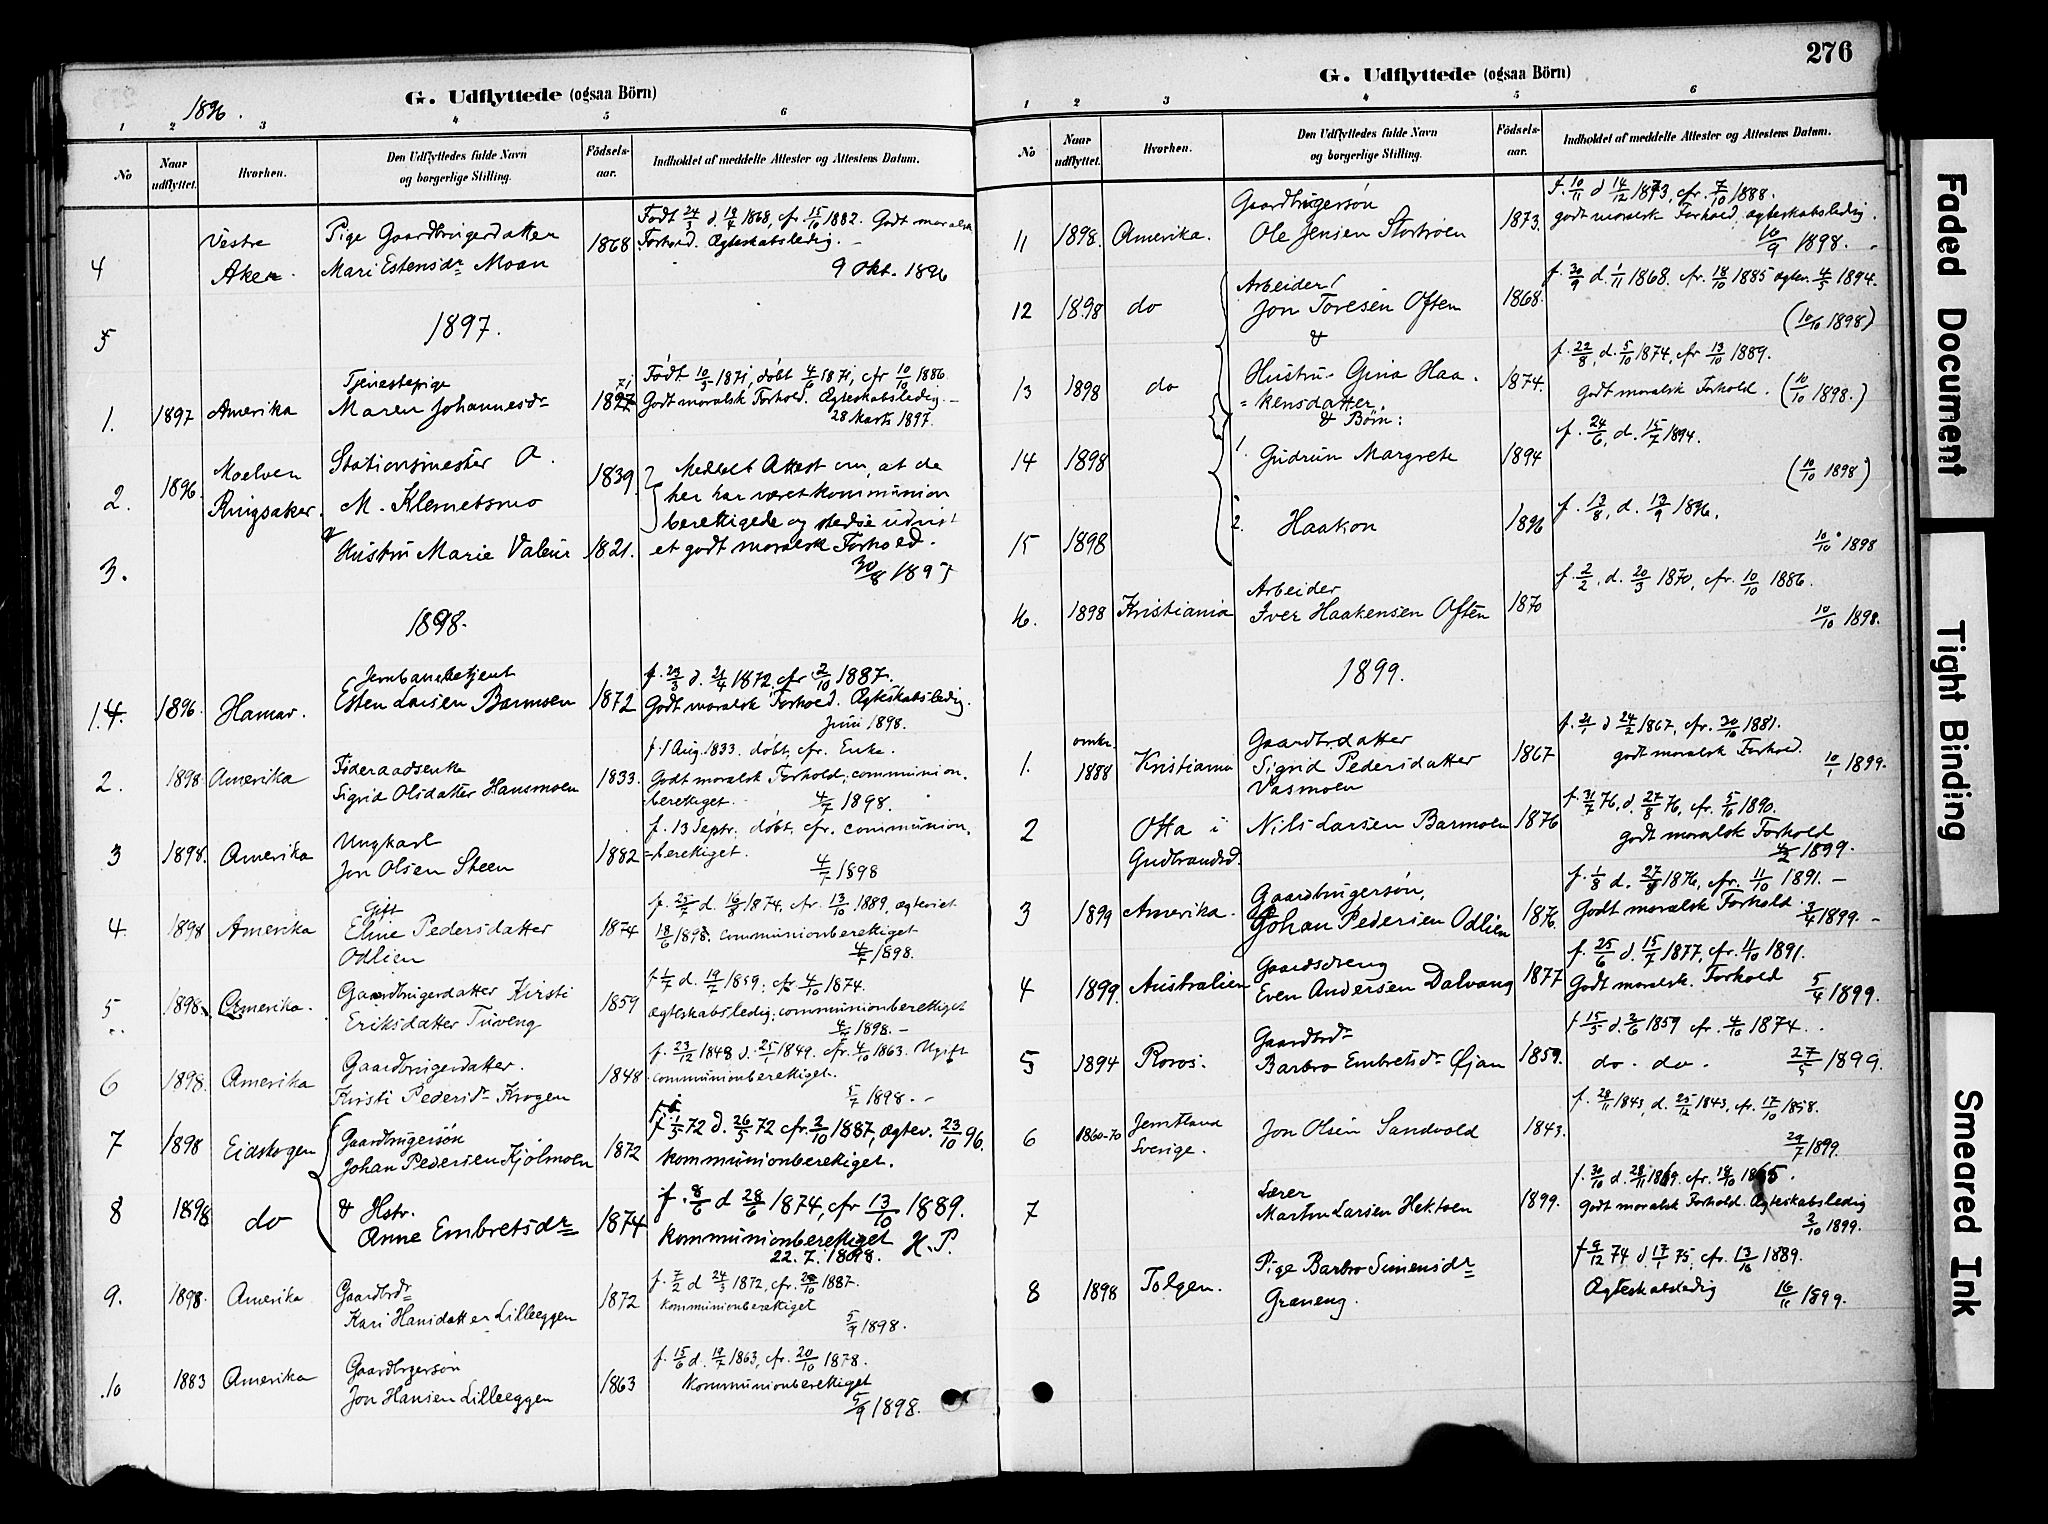 1896.
G. Udflyttede (ogsaa Börn)
1 2 3 4 5 6
No
Naar udflyttet.
Hvorhen.
Den Udflyttedes fulde Navn og borgerlige Stilling.
Födsels-aar.
Indholdet af meddelte Attester og Attestens Datum.
4 Vestre Aker. Pige Gaardbrugerdatter
Mari Estensdr Moan 1868
Født 24/3 d. 19/4 1868, cfr. 15/10 1882. Godt moralsk
Forhold. Ægteskabsledig. –
9 Okt. 1896
5
1897.
1. 1897 Amerika Tjenestepige
Maren Johannesdr 71
Født 10/5 1871, døbt 4/6 1871, cfr 10/10 1886
Godt moralsk Forhold. Ægteskabsledig. –
28 Marts 1897.
2. 1896. Moelven Ringsaker. Stationsmester O.
M. Klemetsmo 1839.
Meddelt Attest om, at de
her har været kommunion
berettigede og stedse udvist
3. & Hustru Marie Valeur 1821. et godt moralsk Forhold.
30/8 1897
1898.
1. 1896. Hamar. Jernbanebetjent
Esten Larsen Barmoen 1872
f. 23/3 d. 21/4 1872, cfr 2/10 1887.
Godt moralsk Forhold. Ægteskabsledig.
Juni 1898.
2. 1898 Amerika Føderaadsenke
Sigrid Olsdatter Hansmoen 1833.
f. 1 Aug. 1833. døbt, cfr. Enke.
Godt moralsk Forhold; communion.
berettiget. 4/7 1898.
3 1898. Amerika Ungkarl
Jon Olsen Steen 1882
f. 13 Septr. døbt, cfr. communion.
=berettiget.
4/7 1898
4. 1898 Amerika Gift
Eline Pedersdatter
Odlien 1874
f. 25/7 d. 16/8 1874, cfr. 13/10 1889, ægteviet
18/6 1898. communionberettiget
4/7 1898.
5 1898. Amerika. Gaardbrugerdatter Kirsti
Eriksdatter Tuveng 1859
f. 1/7 d. 19/7 1859; cfr. 4/10 1874.
ægteskabsledig; communionberettiget
4/7 1898. –
6 1898. Amerika Gaardbrugerdatter.
Kirsti Pedersdr Krogen 1848
f. 23/12 1848 d. 25/1 1849. cfr. 4/10 1863. Ugift
communionberettiget.
5/7 1898. –
7 1898 Eidskogen Gaardbrugersøn
Johan Pedersen Kjølmoen 1872
f. 1/5 72 d. 26/5 72 cfr. 2/10 1887, ægtev. 23/10 96.
kommunionberettiget.
8 1898 do & Hstr.
Anne Embretsdr 1874
f. 8/6 d 28/6 1874, cfr 13/10 1889.
kommunionberettiget H.P.
22. 7. 1898.
9. 1898. Amerika Gaardbrdr
Kari Hansdatter Lilleeggen 1872
f. 7/2 d 24/3 1872, cfr. 2/10 1887.
kommunionberettiget
5/9 1898.
10 1883 Amerika Gaardbrgersøn
Jon Hansen Lilleeggen 1863
f. 15/6 d. 19/7 1863, cfr. 20/10 1878.
kommunionberettiget
5/9 1898.
276
G. Udflyttede (ogsaa Börn)
1 2 3 4 5 6
No
Naar udflyttet.
Hvorhen.
Den Udflyttedes fulde Navn og borgerlige Stilling.
Födsels-aar.
Indholdet af meddelte Attester og Attestens Datum.
11 1898. Amerika. Gaardbrugersøn
Ole Jensen Stortrøen 1873.
f. 10/11 d 14/12 1873, cfr. 7/10 1888.
godt moralsk Forhold, ægteskabsledig.
10/9 1898.
12 1898 do Arbeider
Jon Toresen Often 1868.
f. 30/9 d. 1/11 1868. cfr. 18/10 1885 ægtev. 4/5 1894.
(10/10 1898)
&
13 1898 do Hustru Gina Haa-
=kensdatter. 1874.
f. 22/8, d. 5/10 1874, cfr 13/10 1889.
godt moralsk Forhold. (10/10 1898.)
& Børn:
14 1898 1. Gudrun Margrete 1894
f. 24/6, d. 15/7 1894.
(10/10 1898)
15 1898 2. Haakon 1896
f. 13/8, d. 13/9 1896.
10/10 1898
16. 1898 Kristiania Arbeider
Iver Haakensen Often 1870
f. 2/2, d. 20/3 1870, cfr. 10/10 1886.
10/10 1898.
1899.
1. omkr. 1888 Kristiania Gaardbrdatter
Sigrid Pedersdatter
Vasmoen 1867
f. 21/1 d 24/2 1867, cfr. 30/10 1881.
godt moralsk Forhold.
10/1 1899.
2 Otta i Gudbrandsd. Nils Larsen Barmoen 1876
f. 31/7 76, d. 27/8 76, cfr. 5/10 1890.
godt moralsk Forhold
4/2 1899.
3 1899 Amerika. Gaardbrugersøn,
Johan Pedersen Odlien 1876.
f. 1/8 d. 27/8 1876, cfr. 11/10 1891. –
Godt moralsk Forhold.
3/4 1899. –
4 1899. Australien Gaardsdreng
Even Andersen Dalvang 1877
f. 25/6 d. 15/7 1877, cfr. 11/10 1891.
Godt moralsk. Forhold
5/4 1899.
5 1894 Roros. Gaardbrdr
Barbro Embretsdr Øjan 1859.
f 15/5 d. 2/6 1859 cfr. 4/10 1874.
do. do. 27/5 1899.
6 1860-70 Jemtland Sverige. Jon Olsen Sandvold 1843.
f. 28/11 1843, d. 25/12 1843, cfr. 17/10 1858.
29/7 1899.
7 Lærer
Martin Larsen Hektoen 1899.
f. 30/10 d. 28/11 1869. cfr. 18/10
godt moralsk Forhold. Ægteskabsledig
2/10 1899.
8 1898 Tolgen. Pige Barbro Simensdr
Græneng.
f 9/12 74 d. 17/1 75, cfr. 13/10 1889.
Ægteskabsledig
16/11 1899.
Faded Document
Tight Binding
Smeared Ink